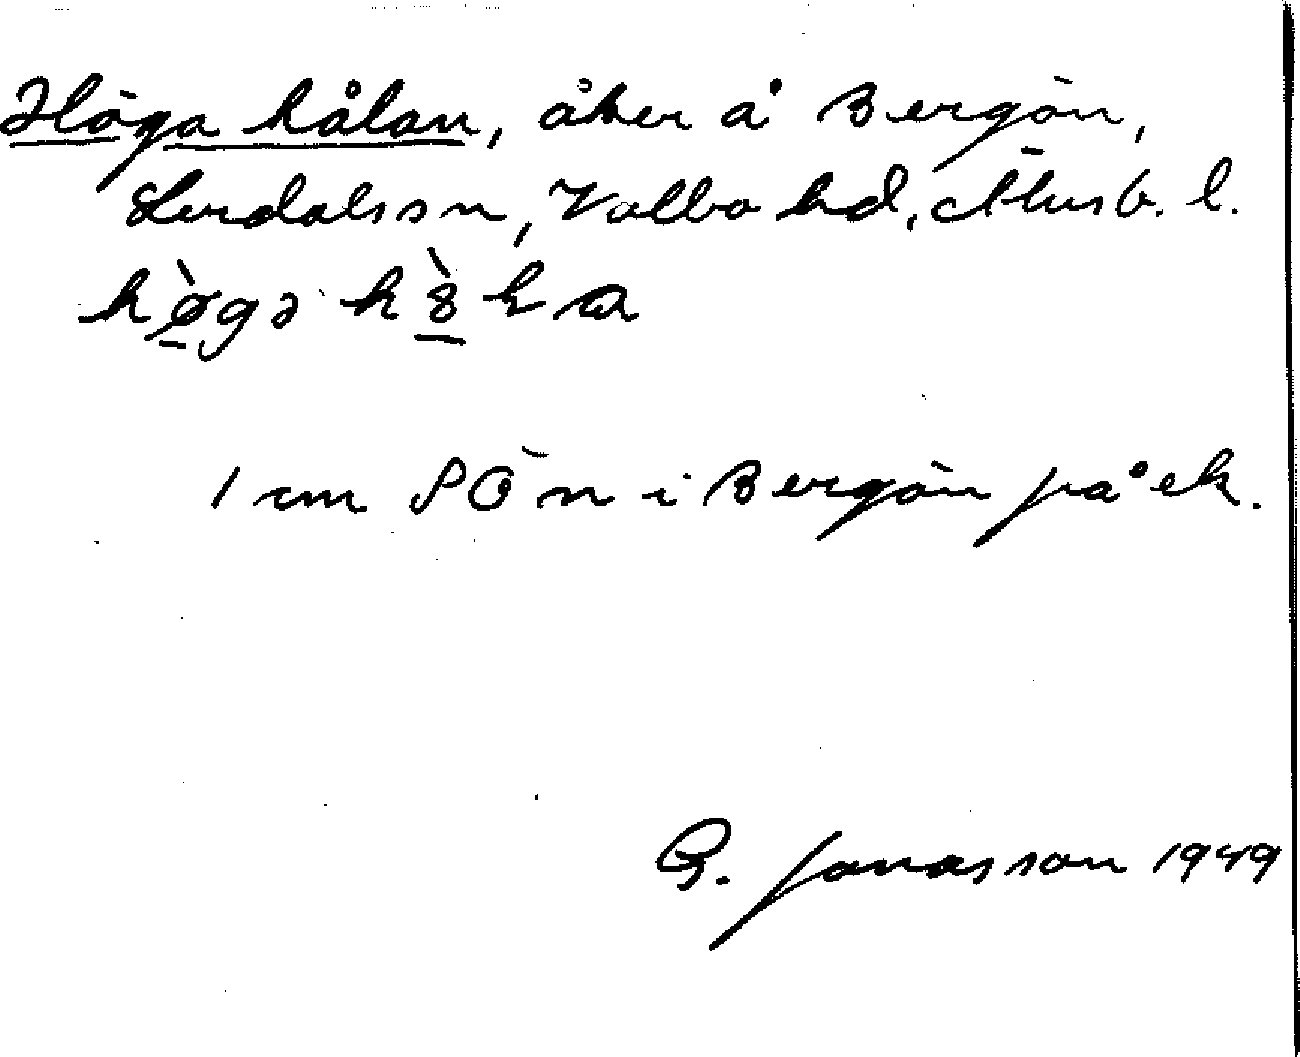 Höga hålan, åker å Bergön,
Lerdals sn, Valbo hd, Älvsb. l.
hø̀gə
1 cm SÖ n i Bergön på ek.
G. Jonasson 1949